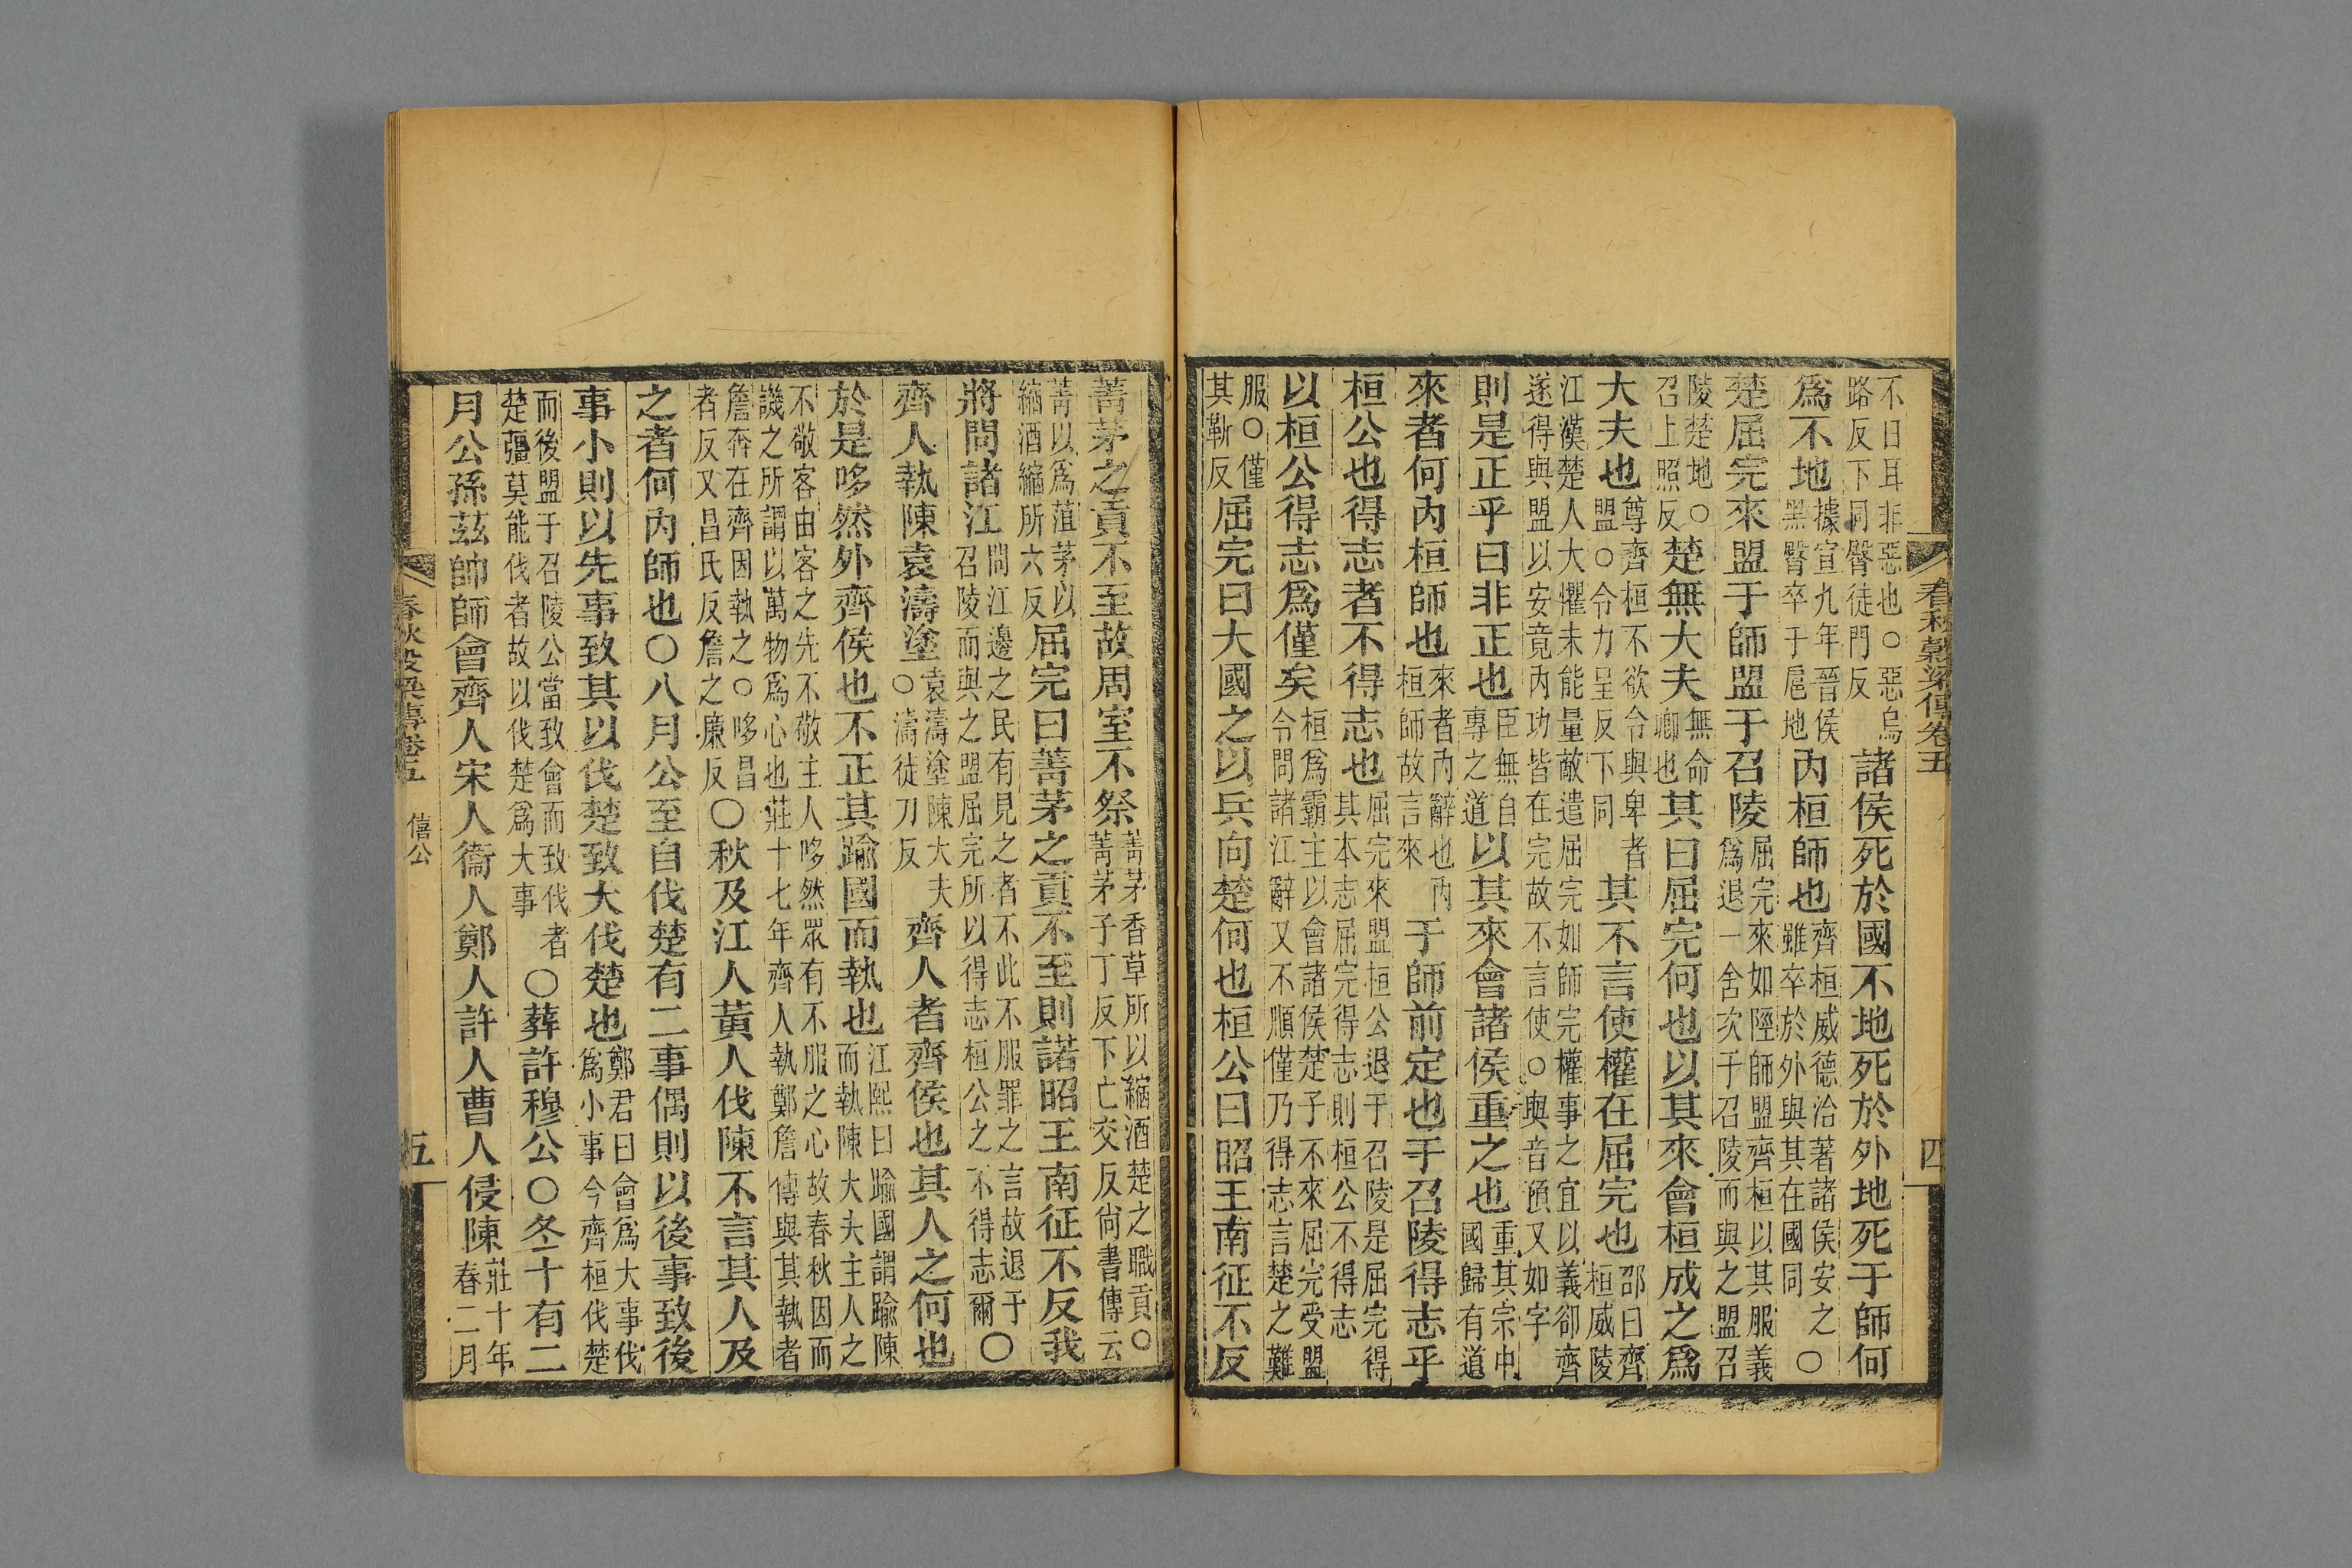 春秋穀梁傳卷五
四
不日耳非惡也○惡烏路反下同臀徒門反諸侯死於國不地死於外地死于師何
爲不地據宣九年晉侯黑臀卒于扈地內桓師也齊桓威德洽著諸侯安之雖卒於外與其在國同○
楚屈完來盟于師盟于召陵屈完來如陘師盟齊桓以其服義爲退一舍次于召陵而與之盟召
陵楚地○召上照反楚無大夫無命卿也其曰屈完何也以其來會桓成之爲
大夫也尊齊桓不欲令與卑者盟○令力呈反下同其不言使權在屈完也邵曰齊桓威陵
江漢楚人大懼未能量敵遣屈完如師完權事之宜以義卻齊遂得與盟以安竟內功皆在完故不言使○與音預又如字
則是正乎曰非正也臣無自專之道以其來會諸侯重之也重其宗中國歸有道
來者何內桓師也來者內辭也內桓師故言來于師前定也于召陵得志乎
桓公也得志者不得志也屈完來盟桓公退于召陵是屈完得其本志屈完得志則桓公不得志
以桓公得志爲僅矣桓爲霸主以會諸侯楚子不來屈完受盟令問諸江辭又不順僅乃得志言楚之難
服○僅其靳反屈完曰大國之以兵向楚何也桓公曰昭王南征不反
菁茅之貢不至故周室不祭菁茅香草所以縮酒楚之職貢○菁茅子丁反下亡交反尚書傳云
菁以爲菹茅以縮酒縮所六反屈完曰菁茅之貢不至則諾昭王南征不反我
將問諸江問江邊之民有見之者不此不服罪之言故退于召陵而與之盟屈完所以得志桓公之不得志爾○
齊人執陳袁濤塗袁濤塗陳大夫○濤徒刀反齊人者齊侯也其人之何也
於是哆然外齊侯也不正其踰國而執也江熙曰踰國謂踰陳而執陳大夫主人之
不敬客由客之先不敬主人哆然眾有不服之心故春秋因而譏之所謂以萬物爲心也莊十七年齊人執鄭詹傳與其執者
詹奔在齊因執之○哆昌者反又昌氏反詹之廉反○秋及江人黃人伐陳不言其人及
之者何內師也○八月公至自伐楚有二事偶則以後事致後
事小則以先事致其以伐楚致大伐楚也鄭君曰會爲大事伐爲小事今齊桓伐楚
而後盟于召陵公當致會而致伐者楚彊莫能伐者故以伐楚爲大事○葬許穆公○冬十有二
月公孫茲帥師會齊人宋人衞人鄭人許人曹人侵陳莊十年春二月
春秋穀梁傳卷五 僖公
五